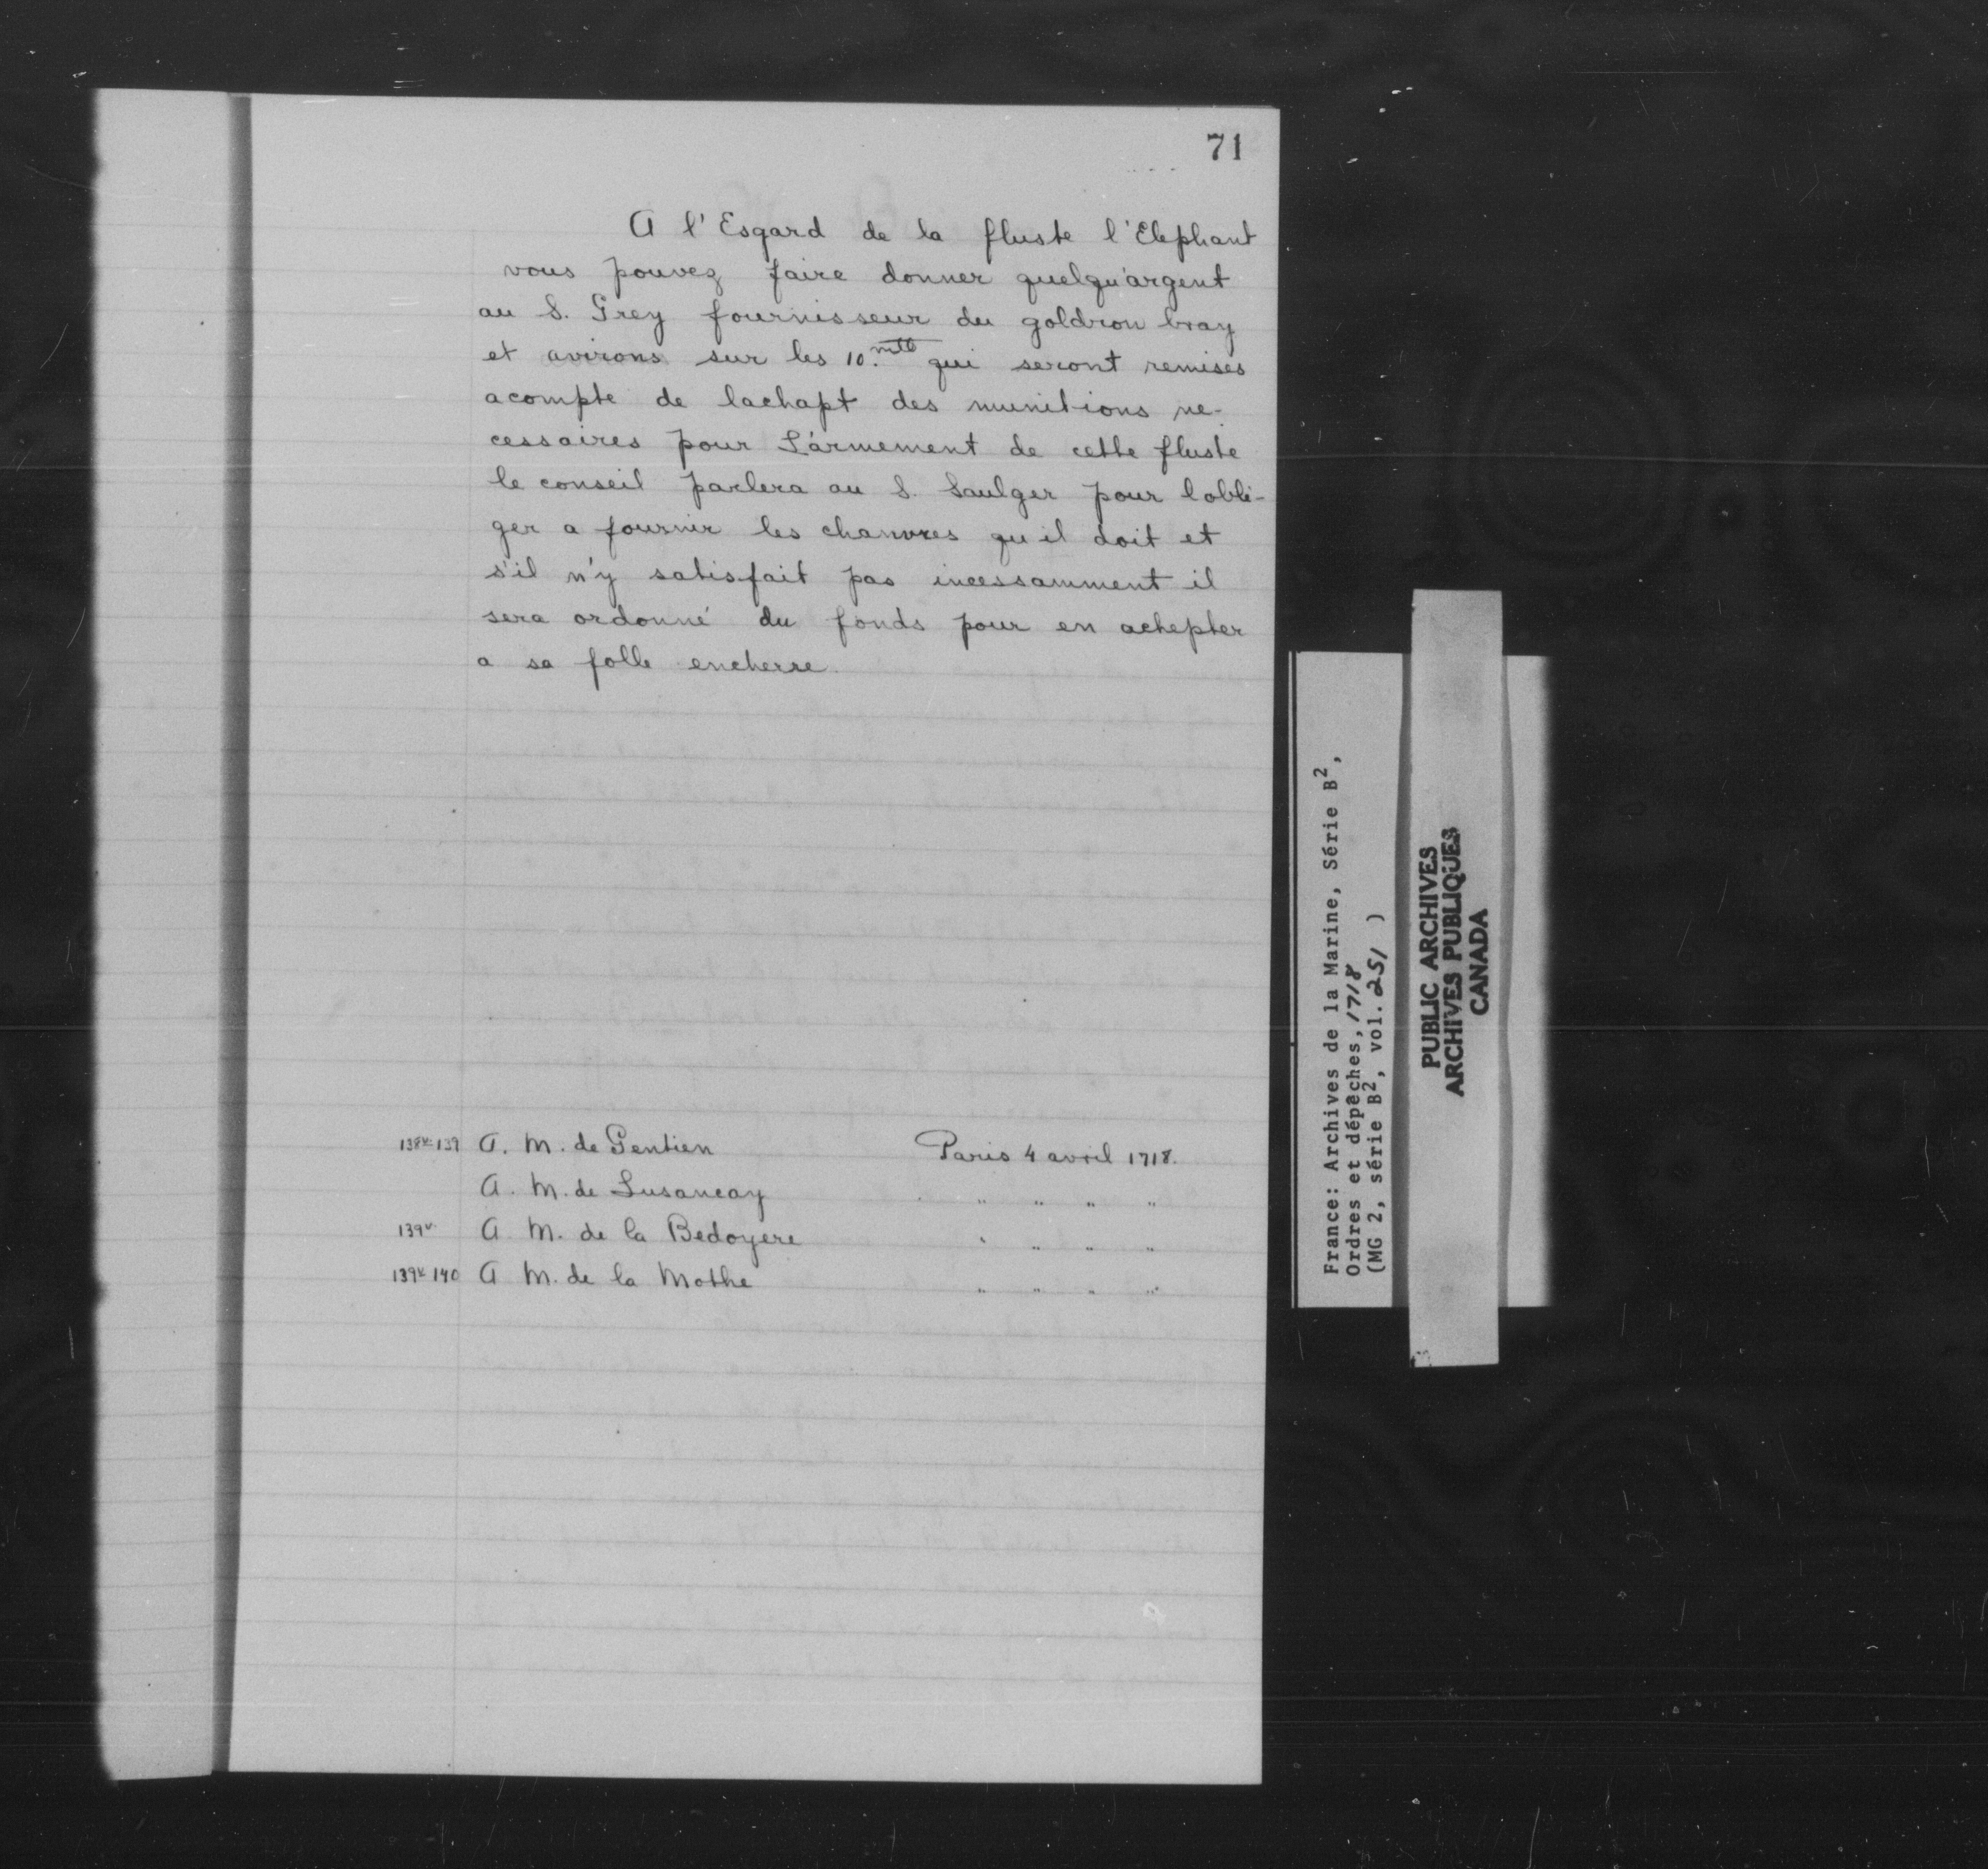 71
A l'Esgard de la fluste l'Elephant
vous pouvez faire donner quelqu'argent
au S. Grey fournisseur du goldron bray
et avirons sur les 10.mtt qui seront remises
acompte de lachapt des munitions ne-
cessaires pour L'armement de cette fluste
le conseil parlera au S. Saulger pour lobli-
ger a fournir les chanvres qu'il doit et
s'il n'y satisfait pas incessamment il
sera ordonné du fonds pour en achepter
a sa folle encherre.
138v-139 A. M. de Gentien Paris 4 avril 1718.
A. M. de Lusancay " " " "
139v. A M. de la Bedoyere " " " "
139v 140 A M. de la Mothe " " " "
France: Archives de la Marine, Série B²,
Ordres et dépêches, 1718
(MG 2, série B², vol. 251 )
PUBLIC ARCHIVES
ARCHIVES PUBLIQUES
CANADA